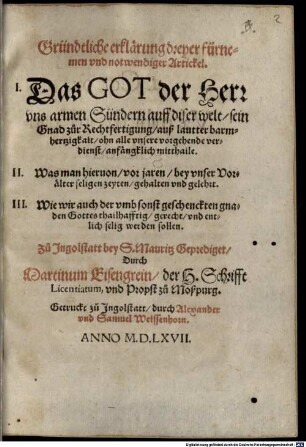 2
Gründtliche erklärung dreyer fürne-
men vnd notwendiger Artickel.
I. Das GOT der Herr
vns armen Sündern auff diser welt/ sein
Gnad zůr Rechtfertigung/ auß lautter barm-
hertzigkait/ ohn alle vnsere vorgehende ver-
dienst/ anfängklich mitthaile.
II. Was man hieruon/ vor jaren/ bey vnser Vor-
älter seligen zeyten/ gehalten vnd gelehrt.
III. Wie wir auch der vmb sonst geschenckten gna-
den Gottes thailhafftig/ gerecht/ vnd ent-
lich selig werden sollen.
Zů Ingolstatt bey S. Mauritz Geprediget/
Durch
Martinum Eisengrein/ der H. Schrifft
Licentiatum, vnd Propst zů Moßpurg.
Getruckt zů Ingolstatt/ durch Alexander
vnd Samuel Weissenhorn.
ANNO M.D.LXVII.